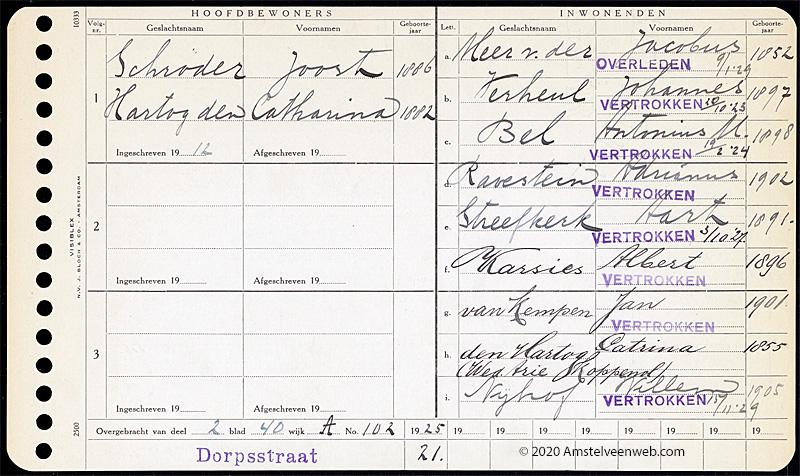 HOOFDBEWONERS
Volg-nr. Geslachtsnaam Voornamen Geboorte-jaar
1 Schröder Joost 1886
Hartog den Catharina 1882
Ingeschreven 19 12 Afgeschreven 19
2
Ingeschreven 19 Afgeschreven 19
3
Ingeschreven 19 Afgeschreven 19
INWONENDEN
Lett. Geslachtsnaam Voornamen Geboorte-jaar
a. Meer v. der Jacobus 1852
OVERLEDEN 9/1-29
b. Verheul Johannes 1897
VERTROKKEN 10/10 '23
c. Bel Antonius M. 1898
VERTROKKEN 19/2 '24
d. Ravestein Adrianus 1902
VERTROKKEN
e. Streefkerk Aart 1891.
VERTROKKEN 3/10 '27.
f. Karsies Albert 1896
VERTROKKEN
g. van Kempen Jan 1901.
VERTROKKEN
h. den Hartog Catrina 1855
(Wed. Arie Koppenol)
i. Nijhof Willem 1905
VERTROKKEN 15/11-29
Overgebracht van deel 2 blad 40 wijk A No. 102 1925 19 19 19 19 19 19 19 19
Dorpsstraat 21.
10333
VISIBLEX
N.V. J. BLOCH & CO. - AMSTERDAM
2500
© 2020 Amstelveenweb.com